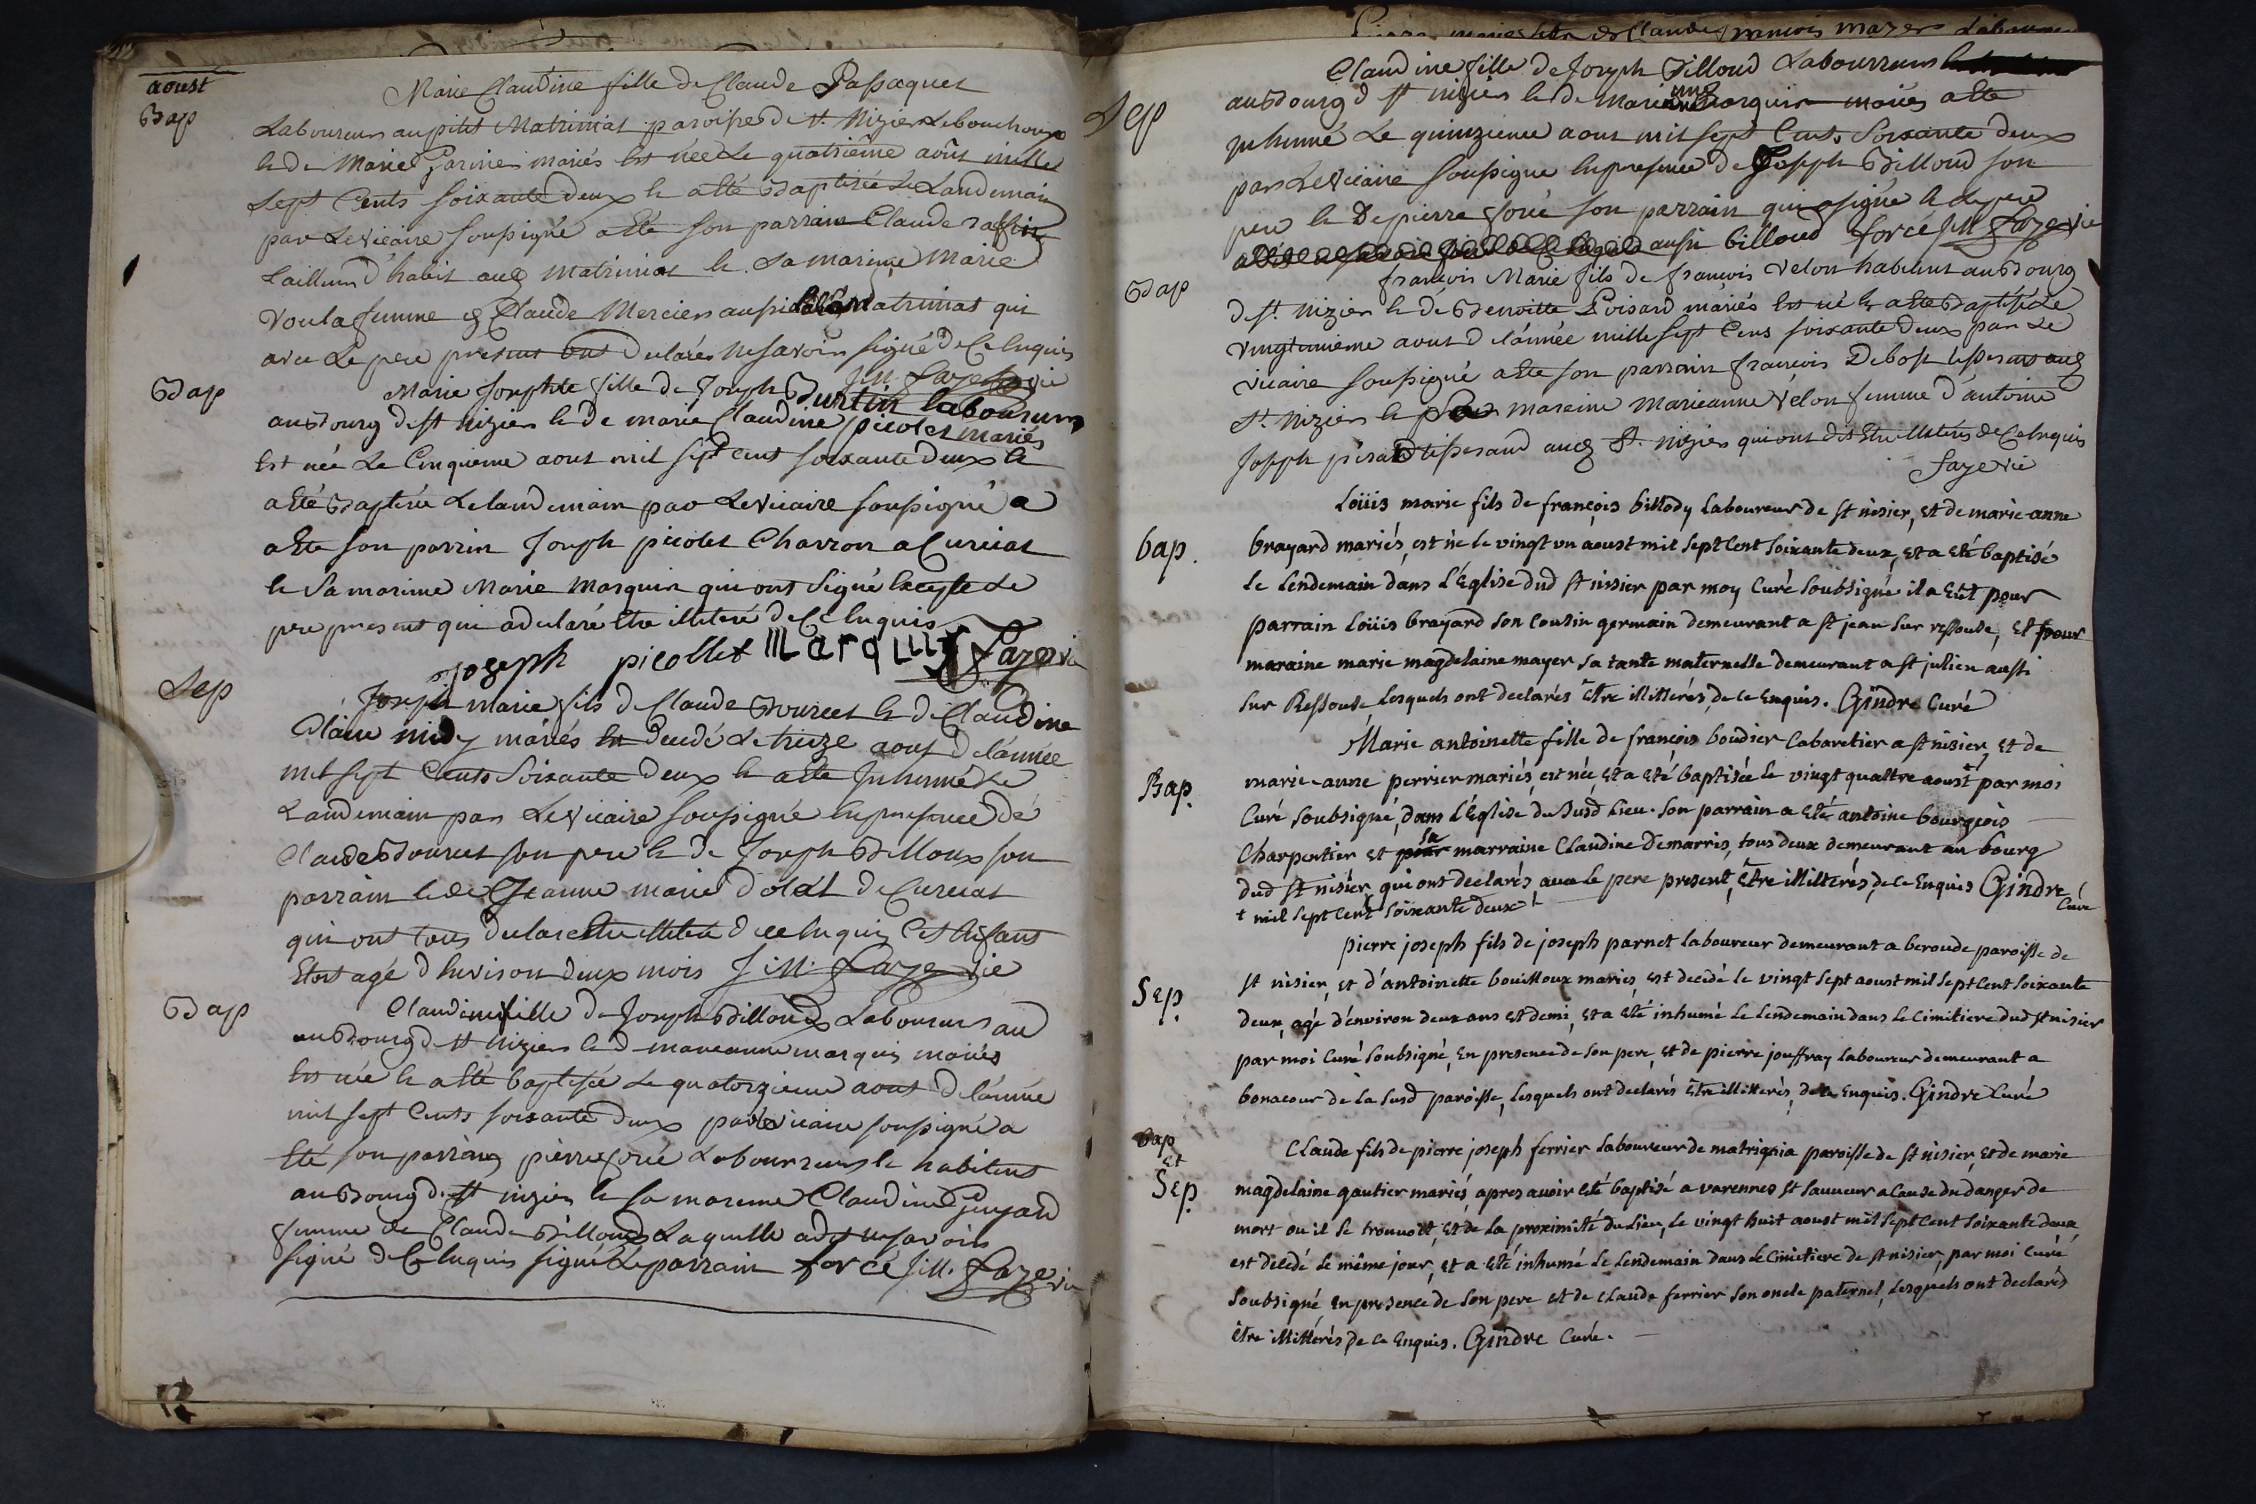 aoust
Bap
Marie Claudine fille de Claude Passaquet
Laboureur au petit Matrinias paroisse de St. Nizier Lebouchoux
et de Marie Garine mariés est née Le quatrième août mille
sept Cents soixante deux et a été Baptisée Le Landemain
par Le vicaire soussigné a été son parrain Claude raffin
tailleur d'habit aud Matrinias et sa marine Marie
femme de Claude Mercier aussi de Matrinias qui
avec Le pere présent ont declarés ne savoir signé de ce enquis
J:M: Faye vic
Bap
Marie Josephte fille de Joseph Burtin laboureur
au Bourg de St nizier et de marie Claudine picolet mariés
est née Le Cinquieme aout mil sept cent soixante deux et
a été Baptisée Le landemain par Le vicaire soussigné a
été son parrin Joseph picolet Charron a Curciat
et sa marine Marie Marquin qui ont signé excepte Le
pere présent qui a declaré etre illiteré de Ce enquis
joseph picollet marquis Faye vic
Sep
Joseph marie fils de Claude Bourcet et de Claudine
Claire midy mariés est Decedé Le treize aout de l'année
mil sept Cents Soixante deux et a été Inhumé Le
Landemain par Le vicaire soussigné en presence de
Claude Bourcet son pere et de Joseph Billoux son
parrain et de Jeanne marie dolat de Curciat
qui ont tous declaré etre illiteré de ce enquis Cet enfant
etoit agé d'environ deux mois J:M: Faye vic
Bap
Claudine fille de Joseph Billoud Laboureur au
au Bourg de St nizier et de marieanne marquis mariés
est née et a été baptisée Le quatorzieme aout de l'année
mil sept Cents soixante deux par Le vicaire soussigné a
été son parrain pierre forcé Laboureur et habitant
au Bourg de St nizier et sa mareine Claudine Guyard
femme de Claude Billoud Laquelle a dit ne savoir
signé de Ce enquis signé Le parrain forcé J:M: Faye vic
Sep
Claudine fille de Joseph Billoud Laboureur
au Bourg de St nizier et de Marieanne Marquis mariés a été
Inhumé Le quinzieme aout mil sept Cents soixante deux
par Le Vicaire soussigné en presence de Joseph Billoud son
pere et De pierre forcé son parrain qui a signé et Le pere
aussi billoud forcé J:M: Faye vic
Bap
françois Marie fils de françois Velon habitant au Bourg
de St. Nizier et de Benoitte Poisard mariés est né et a été Baptisé Le
vingtunième aout de l'année mille sept Cens soixante deux par Le
vicaire soussigné a été son parrain françois Debost tisserand aud
St. Nizier et sa mareine Marieanne Vélon femme d'antoine
Joseph pisard tisserand aud St. nizier qui ont dit Etre illiterés de Ce enquis
Faye vic
bap.
Loüis marie fils de françois billody laboureur de st nisier, et de marie-anne
brayard mariés, est né le vingt vn aoust mil sept cent soixante deux, et a eté baptisé
le lendemain dans l'Eglise dud st nisier par moy curé soubsigné il a eut pour
parrain Loüis brayard son cousin germain demeurant a st jean sur ressouse, et pour
maraine marie magdelaine mayer sa tante maternelle demeurant a st julien aussi
sur Ressouse, Lesquels ont declarés être illitterés, de ce enquis. Gindre Curé
Bap.
Marie antoinette fille de françois boudier cabaretier a st nisier, et de
marie-anne perrier mariés, est née, et a eté baptisée le vingt quattre aoust + par moi
curé soubsigné, dans l'Eglise du susd lieu. son parrain a eté antoine bourgeois
charpentier et sa marraine Claudine Demarris, tous deux demeurant au bourg
dud st nisier, qui ont declarés, avec le pere present, être illitterés, de ce Enquis Gindre Curé
+ mil sept cent soixante deux +
Sep.
pierre joseph fils de joseph parnet laboureur demeurant a beroude paroisse de
st nisier, et d'antoinette bouilloux mariés, est decedé le vingt sept aoust mil sept cent soixante
deux, agé d'environ deux ans et demi, et a eté inhumé le lendemain dans le cimitiere dud st nisier
par moi curé soubsigné, en presence de son pere, et de pierre jouffray laboureur demeurant a
bonacour de la susd paroisse, lesquels ont declarés être illitterés, de ce Enquis. Gindre Curé
Bap
et
Sep.
Claude fils de pierre joseph ferrier laboureur de matrignia paroisse de st nisier, et de marie
magdelaine gautier mariés, apres avoir eté baptisé a varennes st sauveur a cause du danger de
mort ou il se trouvoit, et de la proximité du lieu, le vingt huit aoust mil sept cent soixante deux,
est decedé le même jour, et a eté inhumé le lendemain dans le cimetiere de st nisier, par moi curé
soubsigné en presence de son pere et de claude ferrier son oncle paternel, lesquels ont declarés
être illitterés, de ce Enquis. Gindre curé.